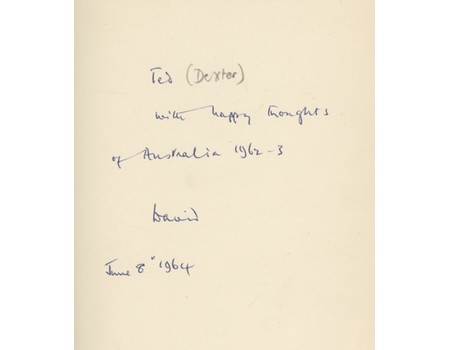 Ted (Dexter)
with happy thoughts
of Australia 1962-3
David
June 8th 1964